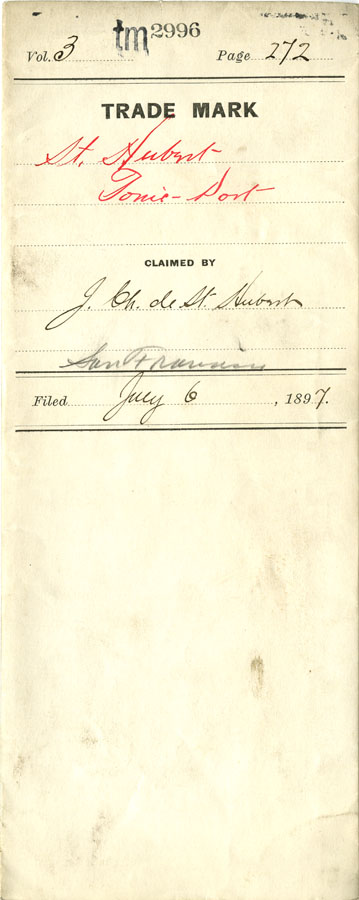 tm 2996
Vol. 3 Page 272
TRADE MARK
St. Hubert
Tonic-Port
CLAIMED BY
J. Ch. de St. Hubert
San Francisco
Filed July 6, 1897.